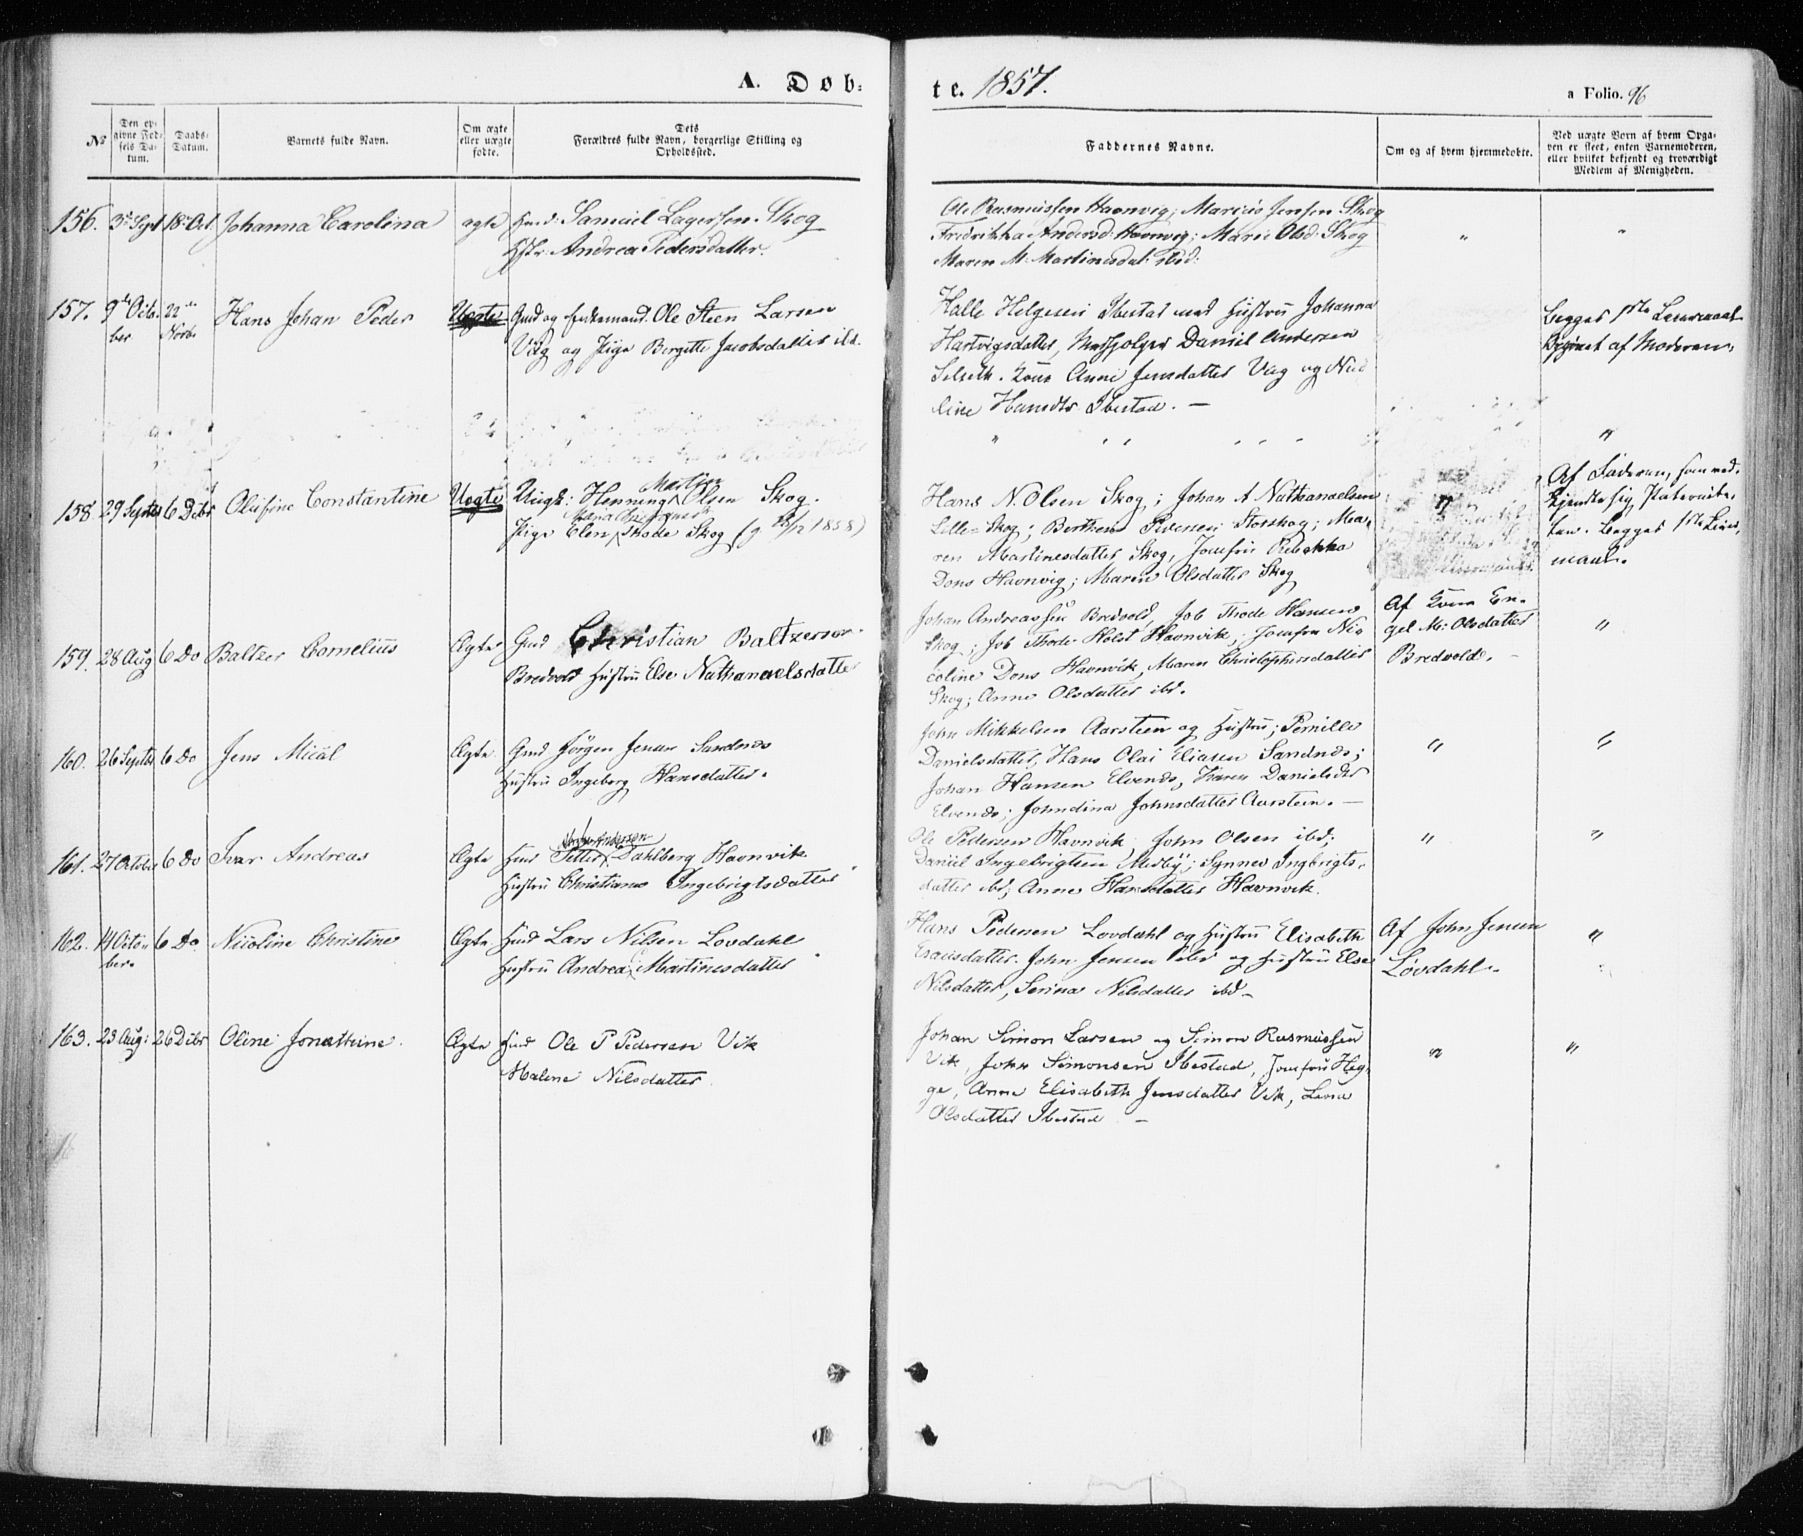 A. Døb:
te. 1857.
a Folio. 96
No
Den opgivne Fødsels Datum.
Daabs-Datum.
Barnets fulde Navn.
Om ægte eller uægte fødte.
Dets Forældres fulde Navn, borgerlige Stilling og Opholdssted.
Faddernes Navne.
Om og af hvem hjemmedøbte.
Ved uægte Børn af hvem Opgaven er skeet, enten Barnemoderen, eller hvilket bekjendt og troværdigt Medlem af Menigheden.
156. 3de Sept 18 Oct. Johanna Carolina ægte Huusd: Samuel Lagesen Skog
Hstr: Andrea Pedersdatter.
Ole Rasmussen Havnvig; Marius Jensen Skog
Fredrikka Andersd: Havnvig; Marie Olsd: Skog
Maren M. Martinusdat: ibid:
" "
157. 9de Octo- 22de Hans Johan Peder Uægte Gmd og Enkemand Ole Steen Larsen
ber Novbr Vig og Pige Bergitte Jacobsdatter ibd.
Halle Helgesen Ibestad med Hustru Johanna
Hartvigsdatter, Daniel Andersen
Selseth. Kone Anne Jensdatter Vig og
line Hansdtr Ibestad. —
Begges 1ste Leiermaal
Opgivet af Moderen.
158 29 Septbr 6 Debr Olufine Constantine Uægte Ungk: Henning Martin Olsen Skog.
Pige Elen Thode Skog (g 1858)
Hans N. Olsen Skog; Johan A Nathanaelsen
Lille-Skog; Berthem Storskog; Ma-
ren Martinesdatter Skog, Jomfru Rebekka
Dons Havnvig; Maren Olsdatter Skog
"
Af Faderen, som ved-
kjendte sig Paternite-
ten. Begges 1ste Leier-
maal.
159. 28 Aug 6 Do Baltzer Cornelius Ægte Gmd Christian Baltzersen
Bredvold Hustru Else Nathanaelsdatter
Johan Andreassen Bredvold, Job Thode Hansen
Skog; Job Thode Holst Havnvik; Jomfru Ni-
coline Dons Havnvik, Maren Christophersdatter
Skog; Anne Olsdatter ibd.
Af Kone En-
gel M: Olsdatter
Bredvold. —
"
160. 26 Septbr 6 Do Jens Mical Ægte Gmd Jörgen Jensen Sandnes
Hustru Ingeborg Hansdatter.
John Mikkelsen Aarsteen og Hustru; Pernille
Danielsdatter, Hans Olai Eliasen Sandnes;
Johan Hansen Elvenes, Karen Danielsdtr
Elvenes; Johndina Johnsdatter Aarsteen. —
" "
161. 27 Octobr 6 Do Ivar Andreas Ægte Huusd Petter Andersen Dahlberg Havnvik
Hustru Christiana Ingebrigtsdatter
Ole Pedersen Havnvik, John Olsen ibd;
Daniel Ingebrigtsen Medby; Synnev Ingbrigts-
datter ibd; Anne Hansdatter Havnvik.
" "
162. 14 Octo- 6 Do Nicoline Christine Ægte Huusd Lars Nilsen Lovdahl
ber. Hustru Andrea Martinusdatter
Hans Pedersen Lovdahl og Hustru Elisabeth
datter John Jensen ibd og Hustru Else
Nilsdatter, Serina Nilsdatter ibd —
Af John Jensen
Løvdahl.
"
163. 23 Aug: 26 Debr Oline Jonathine. Ægte Huusd Ole P Pedersen Vik
Malene Nilsdatter
Johan Simon Larsen og Simon Rasmussen
Vik, John Simonsen Ibestad, Jomfru Heg-
ge, Anne Elisabeth Jensdatter Vik, Lena
Olsdatter Ibestad —
" "